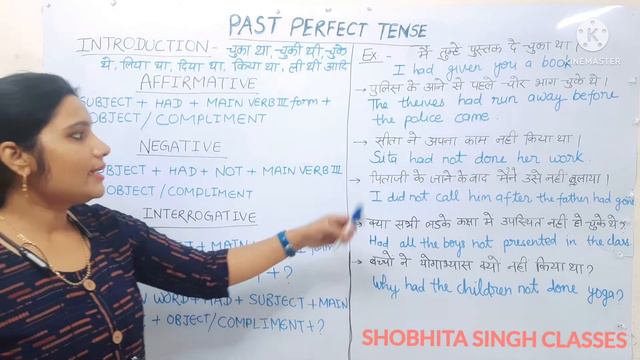 PAST PERFECT TENSE
INTRODUCTION - चुका था, चुकी थी, चुके
थे, लिया था, दिया था, किया था, ली थी आदि
AFFIRMATIVE
SUBJECT + HAD + MAIN VERB III form +
OBJECT/COMPLIMENT
NEGATIVE
SUBJECT + HAD + NOT + MAIN VERB III
OBJECT/COMPLIMENT
INTERROGATIVE
+ MAIN
+ ?
WORD + HAD + SUBJECT + MAIN
+ OBJECT/COMPLIMENT + ?
Ex - मैं तुम्हे पुस्तक दे चुका था।
I had given you a book
→ पुलिस के आने से पहले चोर भाग चुके थे।
The thieves had run away before
the police came.
→ सीता ने अपना काम नहीं किया था।
Sita had not done her work.
→ पिताजी के जाने के बाद मैंने उसे नहीं बुलाया।
I did not call him after the father had gone
→ क्या सभी लड़के कक्षा मे उपस्थित नहीं हो चुके थे?
Had all the boys not presented in the class
→ बच्चो ने योगाभ्यास क्यो नहीं किया था?
Why had the children not done yoga?
KINEMASTER
SHOBHITA SINGH CLASSES